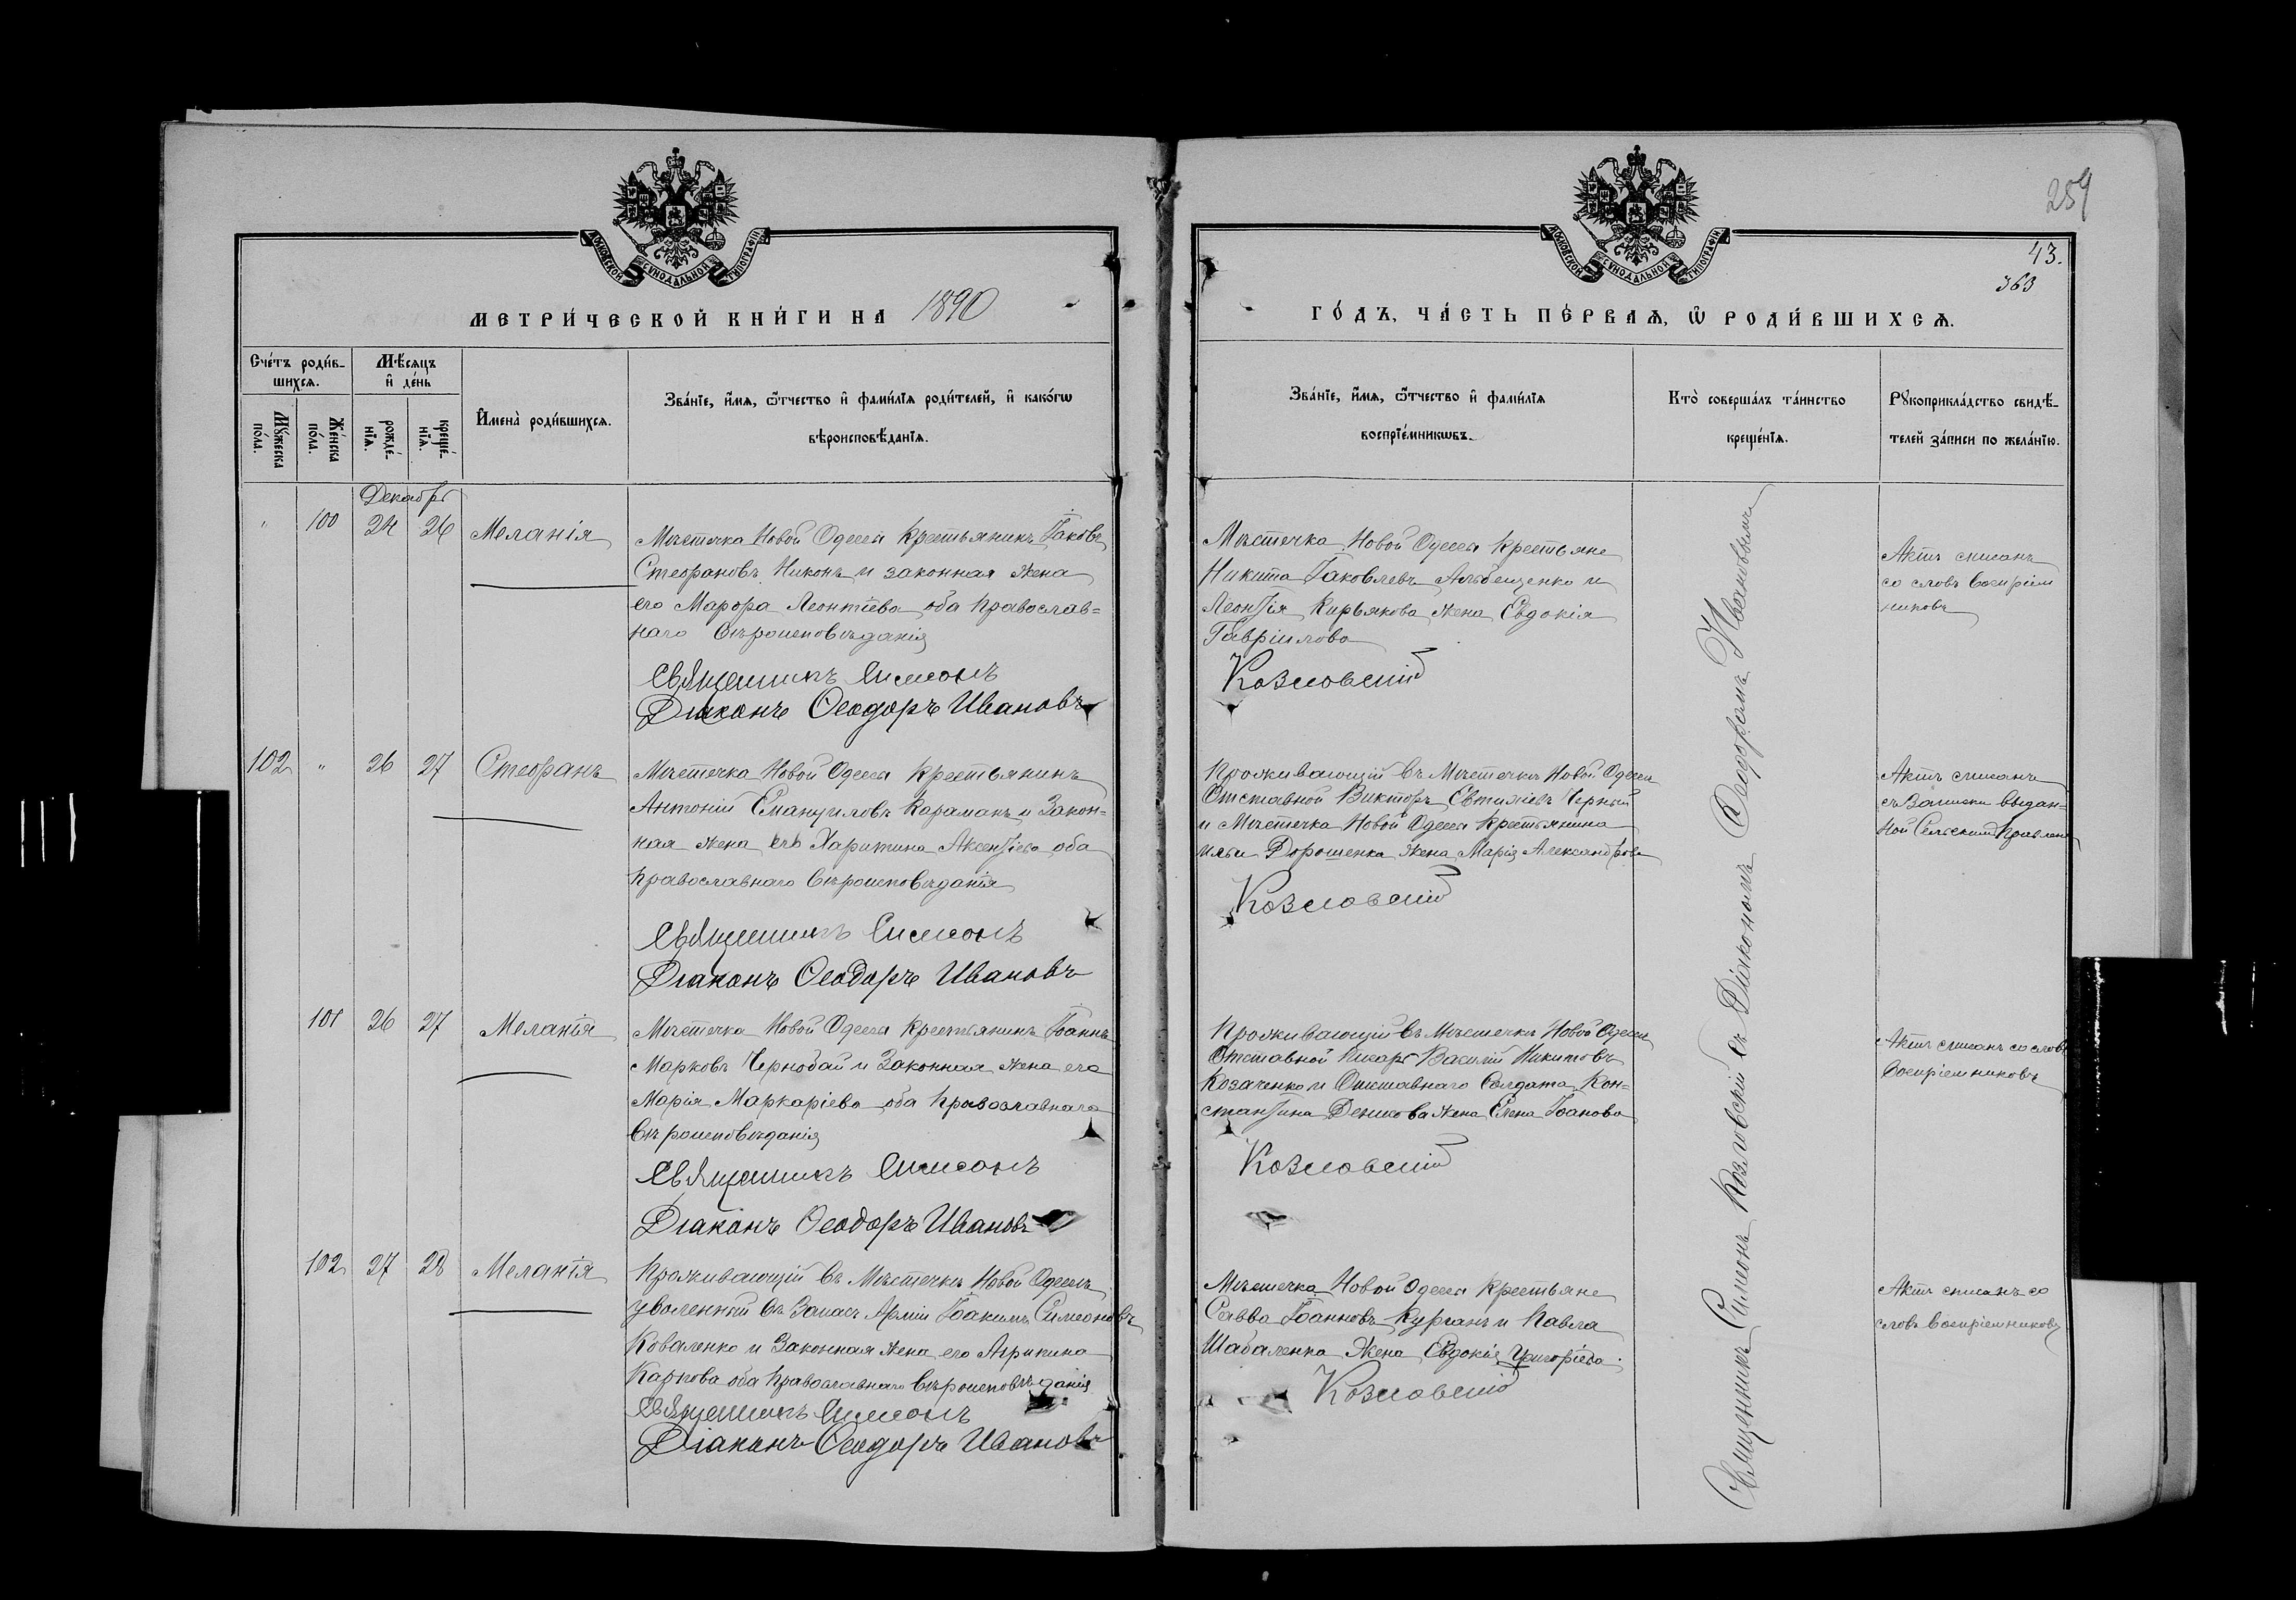 259
43.
363
МОСКОВСКОЙ СѴНОДАЛЬНОЙ ТИПОГРАФІИ
МОСКОВСКОЙ СѴНОДАЛЬНОЙ ТИПОГРАФІИ
МЕТРИ́ЧЕСКОЙ КНИ́ГИ НА 1890
ГО́ДЪ, ЧА́СТЬ ПЕ́РВАѦ, Ѡ РОДИ́ВШИХСѦ.
Сче́тъ роди́в-
шихсѧ.
Мѣ́сѧцъ
и҆ де́нь
Мꙋ́жеска
по́ла.
Же́нска
по́ла.
рожде́-
нїѧ.
креще́-
нїѧ.
И҆мена̀ роди́вшихсѧ.
Зва́нїе, и҆́мѧ, ѻ҆́тчество и҆ фами́лїѧ роди́телей, и҆ како́гѡ
вѣроисповѣ́данїѧ.
Зва́нїе, и҆́мѧ, ѻ҆́тчество и҆ фами́лїѧ
воспрїе́мникѡвъ.
Кто̀ соверша́лъ та́инство
креще́нїѧ.
Рꙋкоприкла́дство свидѣ́-
телей за́писи по жела́нїю.
Декабрь
" 100 24 26 Меланія
Мѣстечка Новой Одессы Крестьянинъ Іаковъ
Стефановъ Никонъ и законная жена
его Марфа Леонтіева оба православ=
наго вѣроисповѣданія
Священникъ Симеонъ
Діаконъ Ѳеодоръ Ивановъ
Мѣстечка Новой Одессы Крестьяне
Никита Іаковлевъ и
Леонтія Кирьякова жена Евдокія
Гавріилова
Козловскій
Актъ списанъ
со словъ воспріем
никовъ
102 " 26 27 Стефанъ
Мѣстечка Новой Одессы Крестьянинъ
Антоній Емануиловъ Караманъ и Закон=
ная жена его Харитина Аксентіева оба
православнаго вѣроисповѣданія
Священникъ Симеонъ
Діаконъ Ѳеодоръ Ивановъ
Проживающій въ Мѣстечкѣ Новой Одессы
Отставной Викторъ Евтихіевъ Черный
и Мѣстечка Новой Одессы Крестьянина
Ильи Дорошенка жена Марія Александрова
Козловскій
Актъ списанъ
съ Записки выдан=
ной Сельскимъ Правлен
101 26 27 Меланія
Мѣстечка Новой Одессы Крестьянинъ Іоаннъ
Марковъ Чернобай и Законная жена его
Марія Маркаріева оба православнаго
вѣроисповѣданія
Священникъ Симеонъ
Діаконъ Ѳеодоръ Ивановъ
Проживающій въ Мѣстечкѣ Новой Одессы
Отставной Писарь Василій Никитовъ
Козаченко и Отставнаго Солдата Кон=
стантина Денисова жена Елена Іоанова
Козловскій
Актъ списанъ со словъ
воспріемниковъ
102 27 28 Меланія
Проживающій въ Мѣстечкѣ Новой Одессѣ
уволенный въ Запасъ Арміи Іоакимъ Симеоновъ
Коваленко и Законная жена его Агрипина
Карпова оба православнаго вѣроисповѣданія
Священникъ Симеонъ
Діаконъ Ѳеодоръ Ивановъ
Мѣстечка Новой Одессы Крестьяне
Савва Іоанновъ Курганъ и Павла
Шабаленка жена Евдокія Григоріева.
Козловскій
Актъ списанъ со
словъ воспріемниковъ
Священникъ Симеонъ Козловскій съ Діакономъ Ѳеодоромъ Ивановымъ